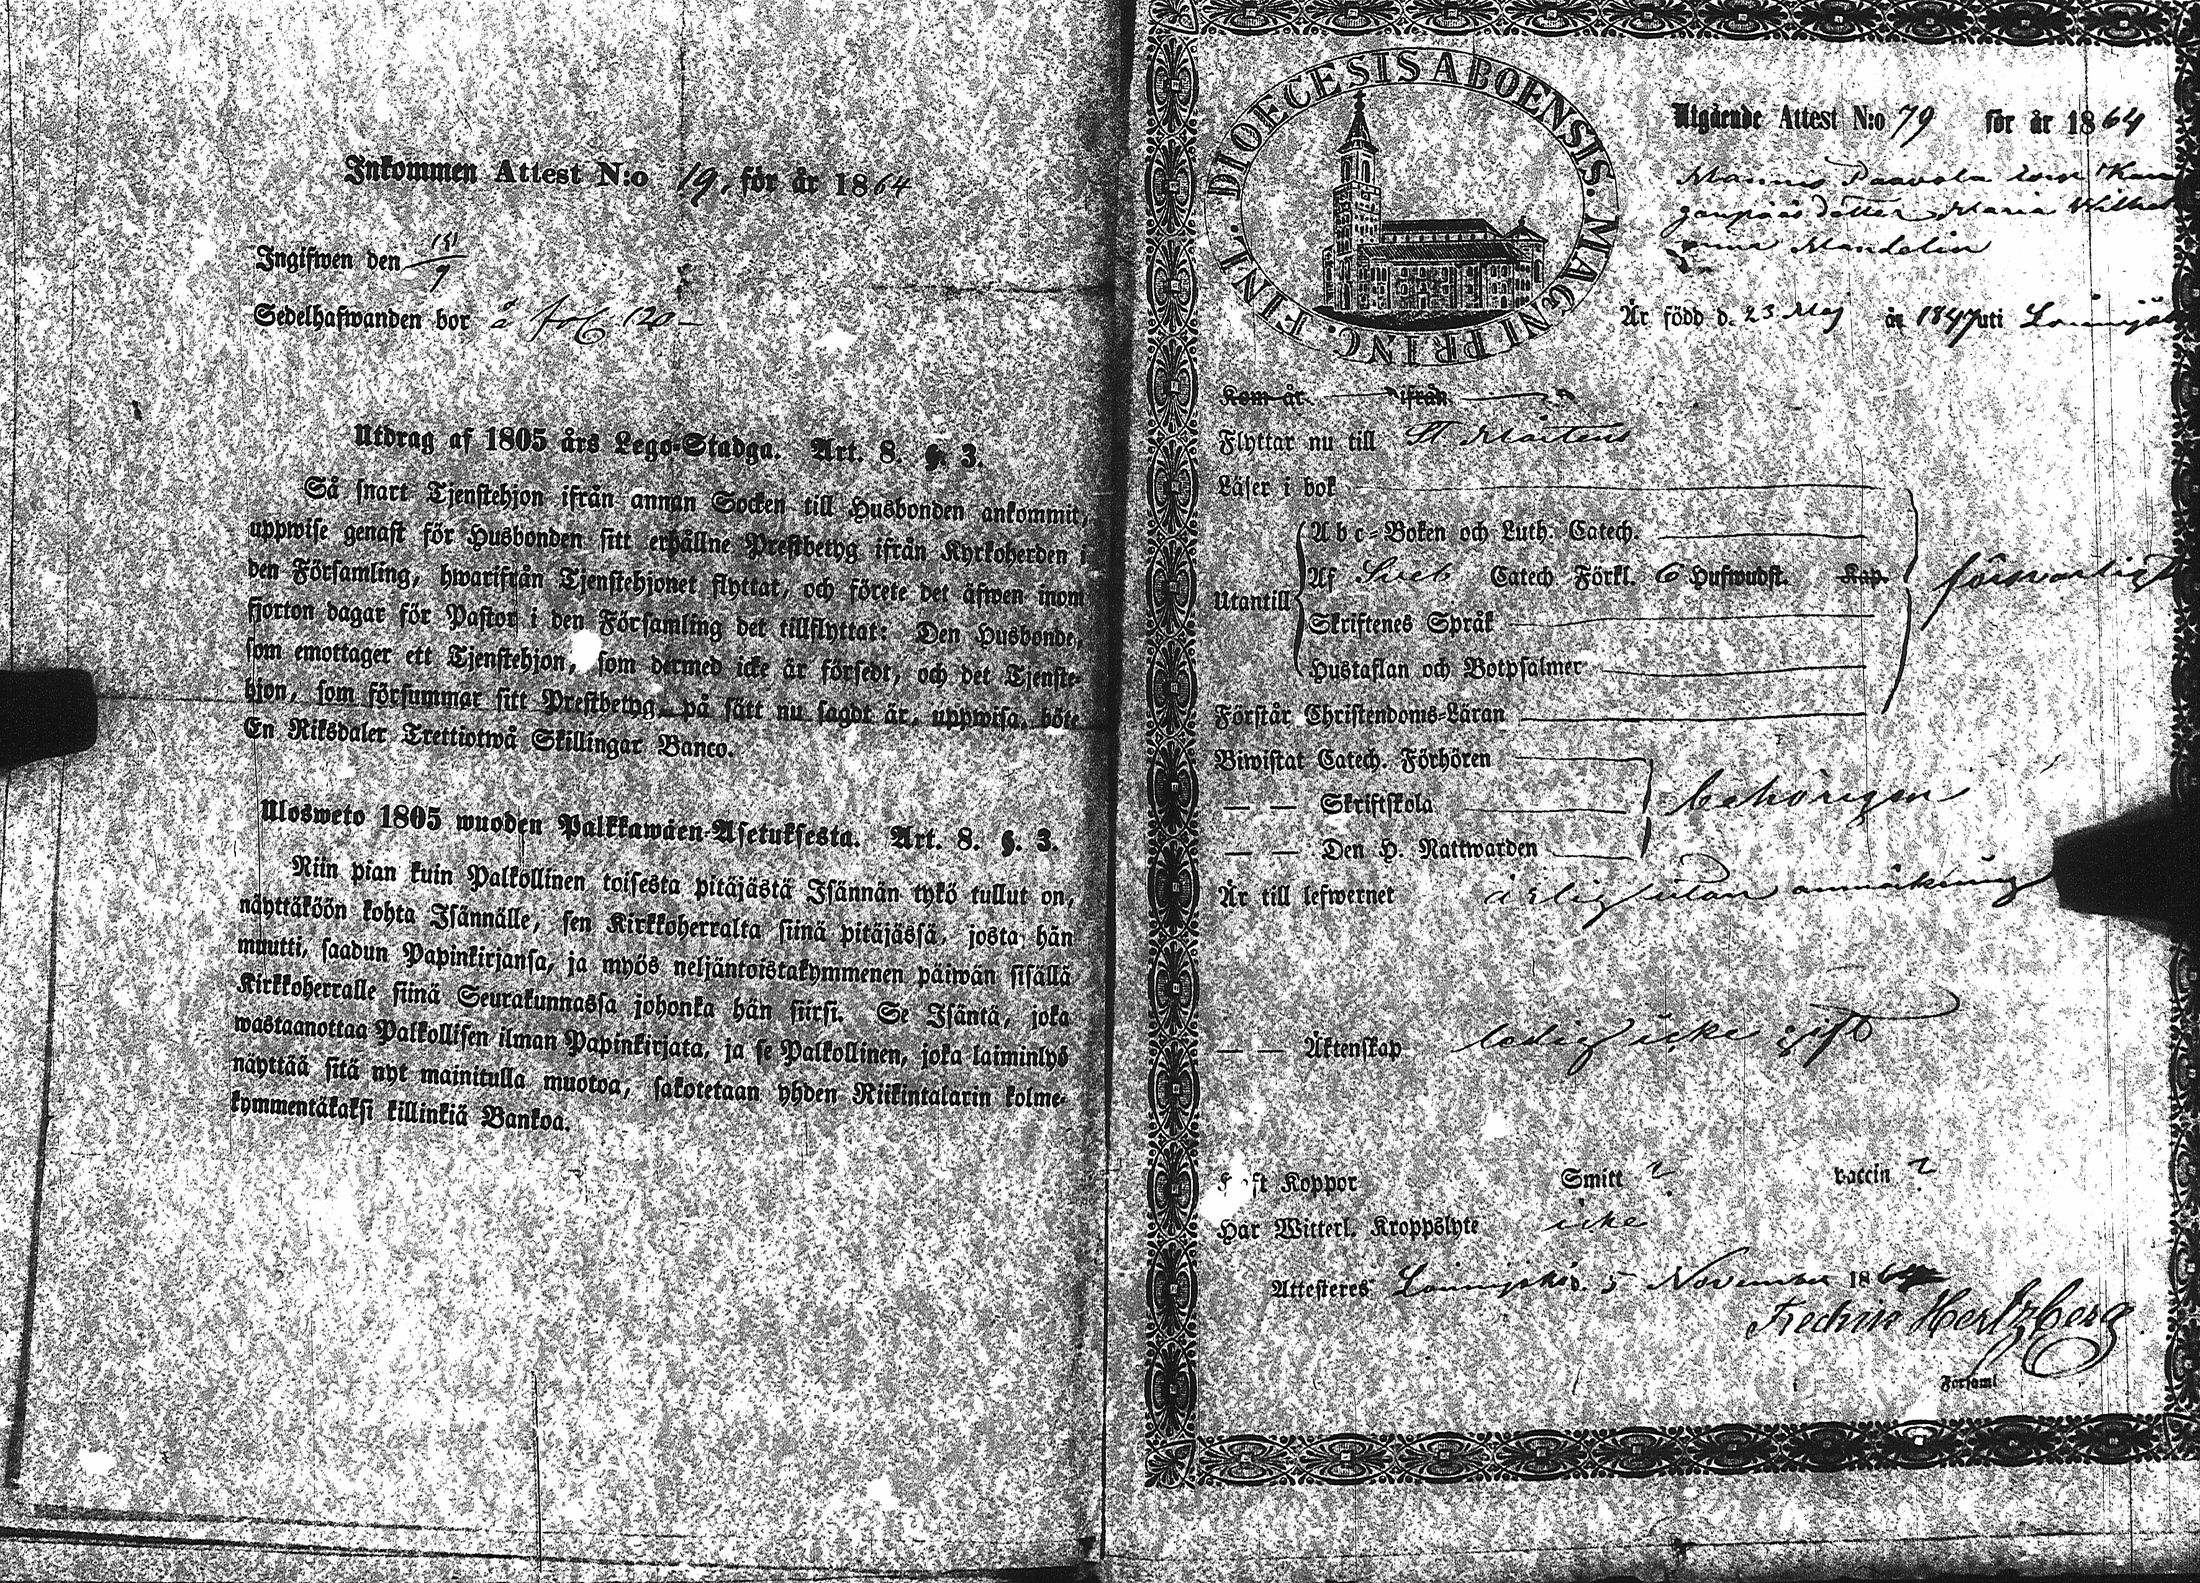 Inkommen Attest N:o 19, för år 1864
Ingifwen den 19/9
Sedelhafwanden bor å fol. 120
Utdrag af 1805 års Lego-Stadga. Art. 8. §. 3.
Så snart Tjenstehjon ifrån annan Socken till Husbonden ankommit,
uppwise genast för Husbonden sitt erhållne Prestbetyg ifrån Kyrkoherden i
den Församling, hwarifrån Tjenstehjonet flyttat, och förete det äfwen inom
fjorton dagar för Pastor i den Församling det tillflyttat: Den Husbonde,
som emottager ett Tjenstehjon, som dermed icke är försedt, och det Tjenste-
hjon, som försummar sitt Prestbetyg på sätt nu sagdt är, uppwisa, böte
En Riksdaler Trettiotwå Skillingar Banco.
Ulosweto 1805 wuoden Palkkawäen-Asetuksesta. Art. 8. §. 3.
Niin pian kuin Palkollinen toisesta pitäjästä Isännän tykö tullut on,
näyttäköön kohta Isännälle, sen Kirkkoherralta siinä pitäjässä, josta hän
muutti, saadun Papinkirjansa, ja myös neljäntoistakymmenen päiwän sisällä
Kirkkoherralle siinä Seurakunnassa johonka hän siirsi. Se Isäntä, joka
wastaanottaa Palkollisen ilman Papinkirjata, ja se Palkollinen, joka laiminlyö
näyttää sitä nyt mainitulla muotoa, sakotetaan yhden Riikintalarin kolme-
kymmentäkaksi killinkiä Bankoa.
FINL. DIOECESIS ABOENSIS. MAGNI PRINC.
Utgående Attest N:o 79 för år 1864
Paavola
dotter Maria
Mandelin
Är född d. 23 Maj år 1847 uti
Kom år ifrån
Flyttar nu till St Mårtens
Läser i bok
Utantill
Abc-Boken och Luth. Catech.
Af Sveb Catech Förkl. 6 Hufwudst. Kap. försvarligt
Skriftenes Språk
Hustaflan och Botpsalmer
Förstår Christendoms-Läran
Biwistat Catech. Förhören
— — Skriftskola behörigen
— — Den H. Nattwarden
Är till lefwernet ärlig utan anmärkning
— — Äktenskap ledig icke gift
Haft Koppor Smitt ? vaccin ?
Har Witterl. Kroppslyte icke
Attesteres Loimijoki d. 5 November 1864
Fredric Hertzberg
Församl